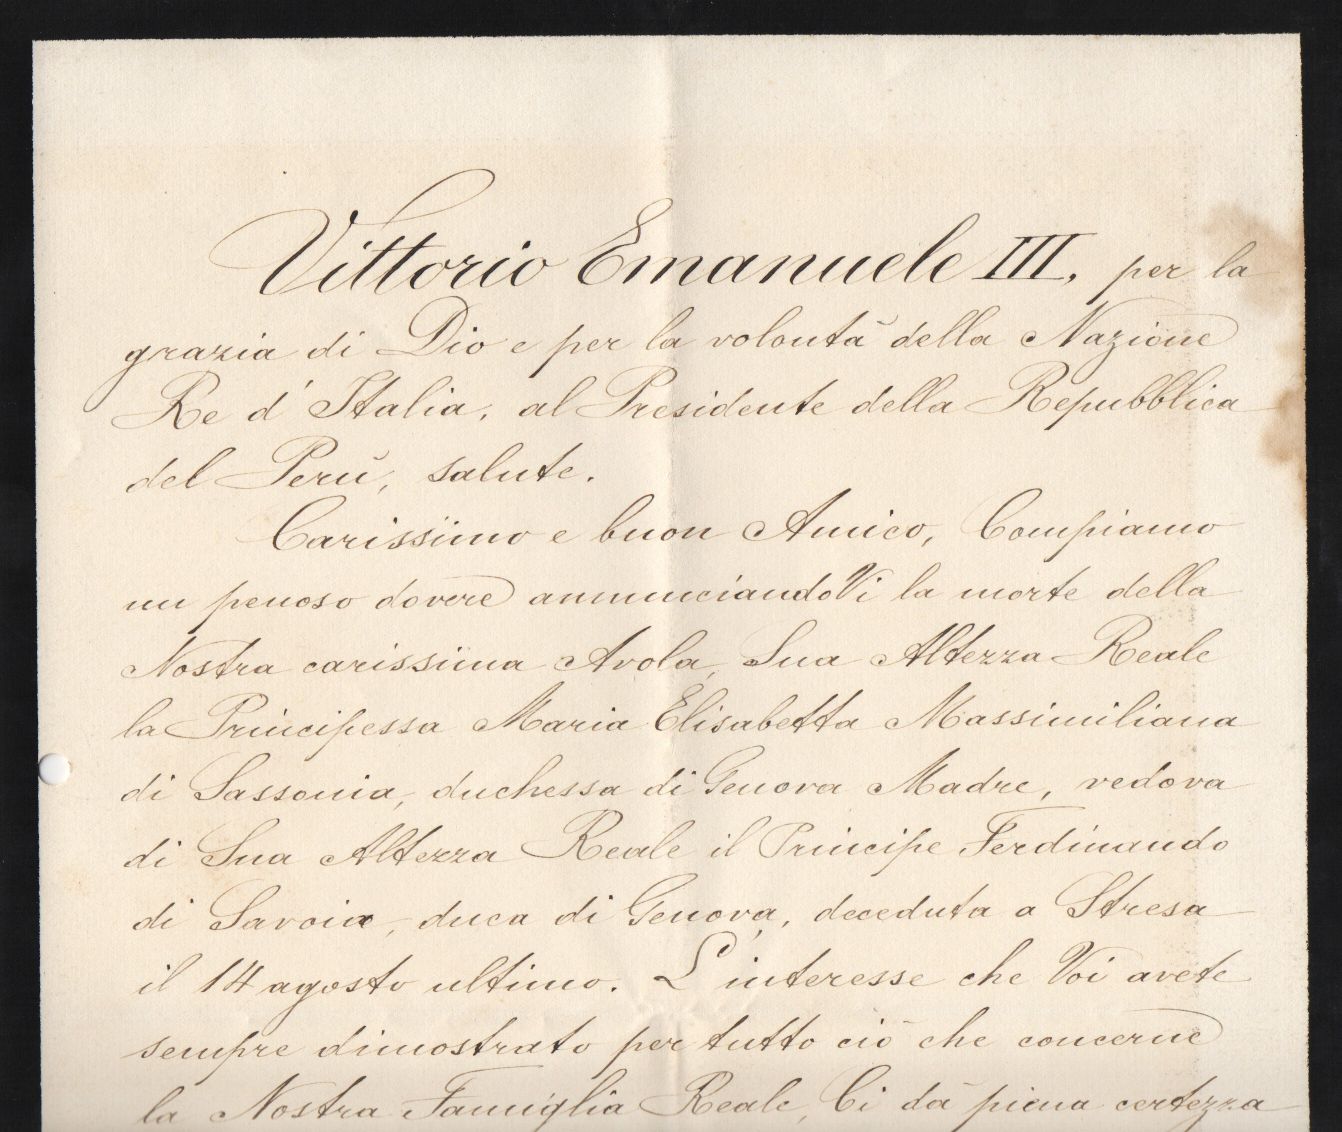 Vittorio Emanuele III, per la
grazia di Dio e per la volontà della Nazione
Re d'Italia, al Presidente della Repubblica
del Perù, salute.
Carissimo e buon Amico, Compiamo
un penoso dovere annunciandoVi la morte della
Nostra carissima Avola, Sua Altezza Reale
la Principessa Maria Elisabetta Massimiliana
di Sassonia, duchessa di Genova Madre, vedova
di Sua Altezza Reale il Principe Ferdinando
di Savoia, duca di Genova, deceduta a Stresa
il 14 agosto ultimo. L'interesse che Voi avete
sempre dimostrato per tutto ciò che concerne
la Nostra Famiglia Reale, Ci dà piena certezza